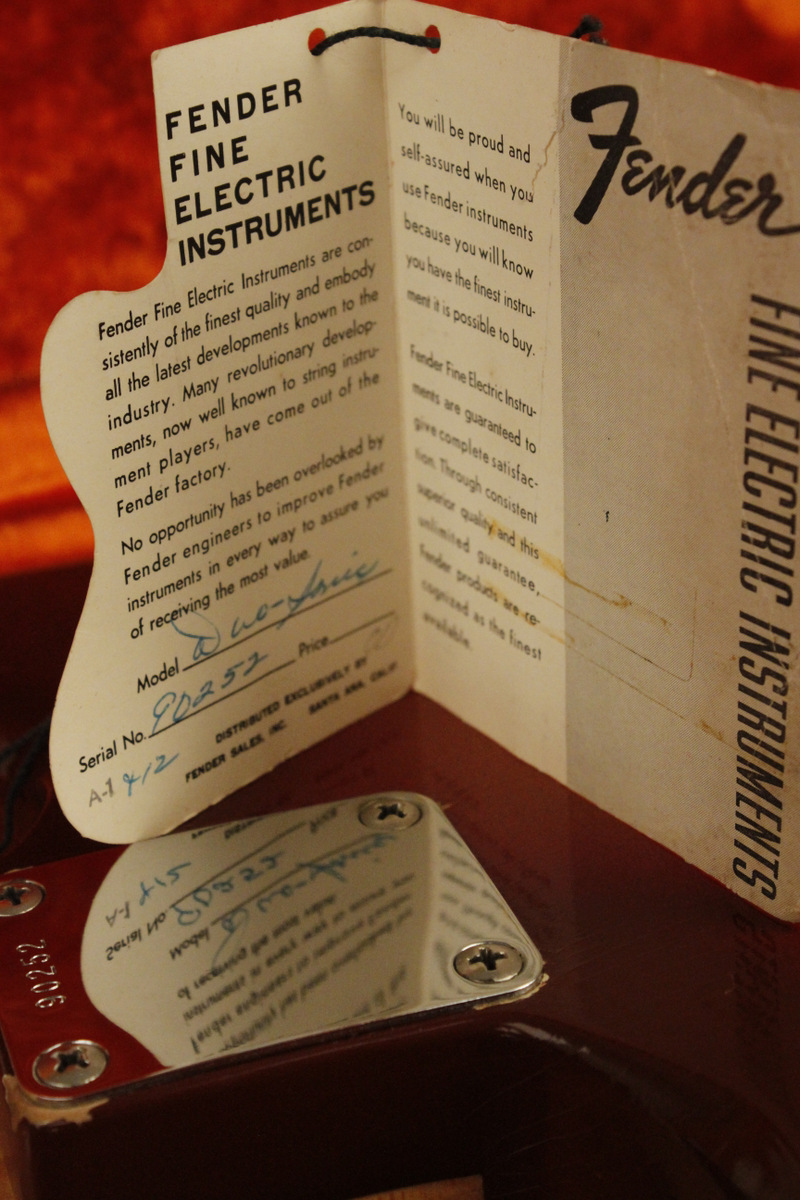 FENDER
FINE
ELECTRIC
INSTRUMENTS
Fender Fine Electric Instruments are con-
sistently of the finest quality and embody
all the latest developments known to the
industry. Many revolutionary develop-
ments, now well known to string instru-
ment players, have come out of the
Fender factory.
No opportunity has been overlooked by
Fender engineers to improve Fender
instruments in every way to assure you
of receiving the most value.
Model Duo-Sonic
Serial No. 90252 Price
A-1 412
DISTRIBUTED EXCLUSIVELY BY
FENDER SALES, INC. SANTA ANA, CALIF
You will be proud and
self-assured when you
use Fender instruments
because you will know
you have the finest instru-
ment it is possible to buy.
Fender Fine Electric Instru-
ments are guaranteed to
give complete satisfac-
tion. Through consistent
superior quality and this
unlimited guarantee,
Fender products are re-
cognized as the finest
available.
Fender
FINE ELECTRIC INSTRUMENTS
90252